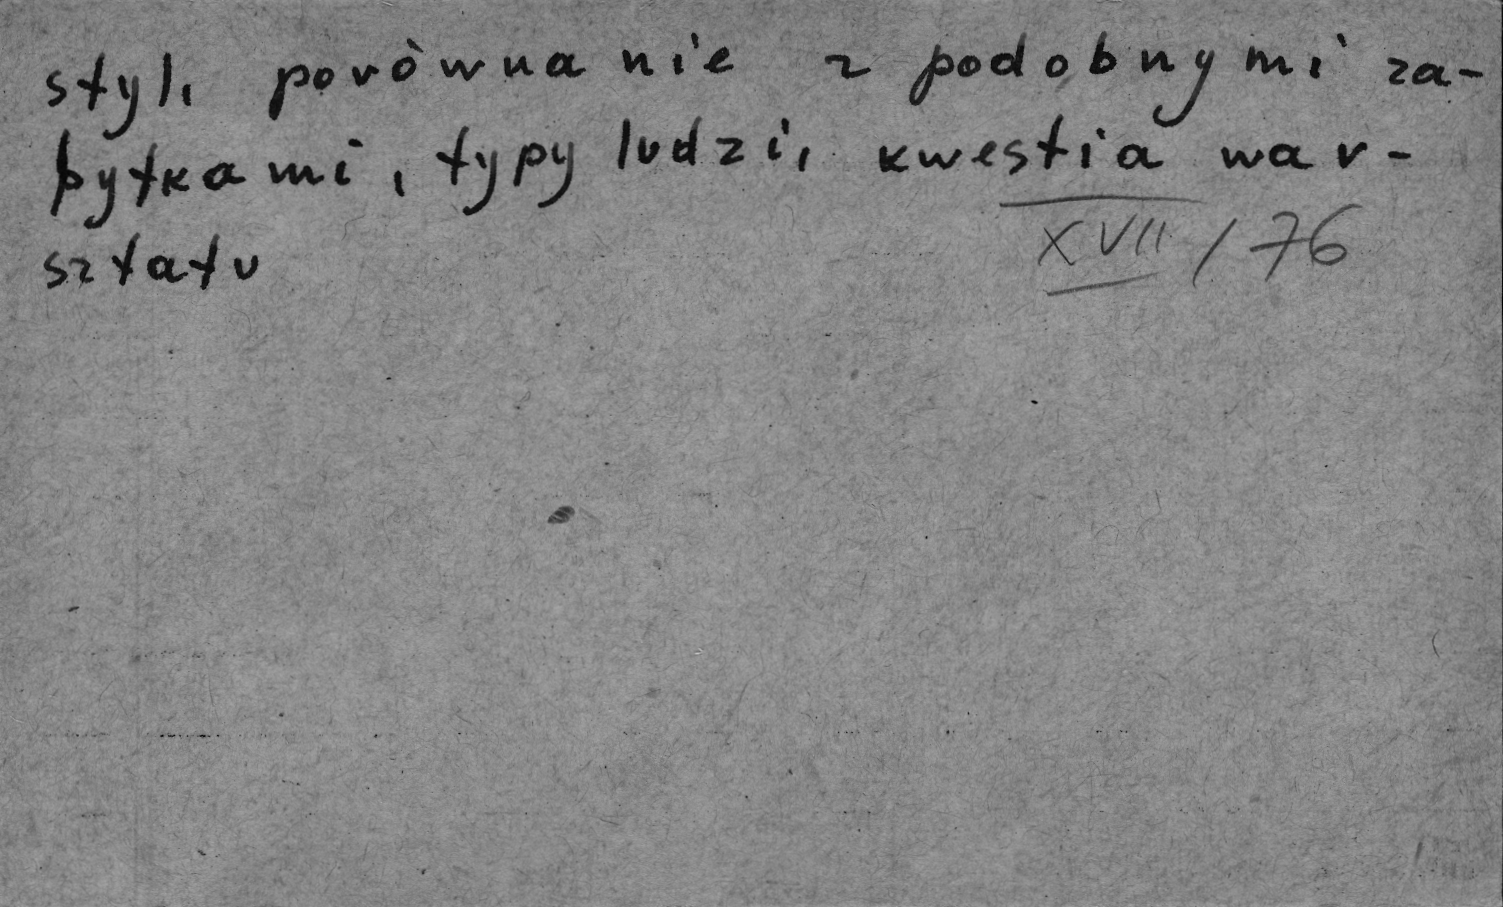 styl, porównanie z podobnymi za-
bytkami, typy ludzi, kwestia war-
sztatu
XVII/76